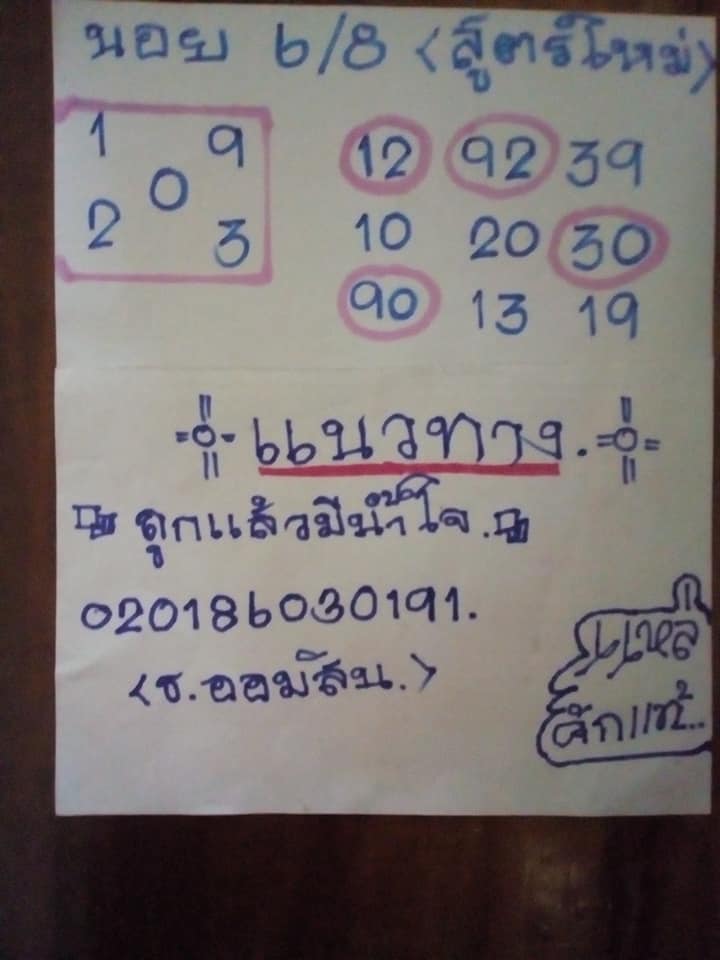 นอย 6/8 <สูตรใหม่>
1 9
0
2 3
12 92 39
10 20 30
90 13 19
แนวทาง.
ถูกแล้วมีน้ำใจ.
020186030191.
<ธ.ออมสิน.>
แหล่